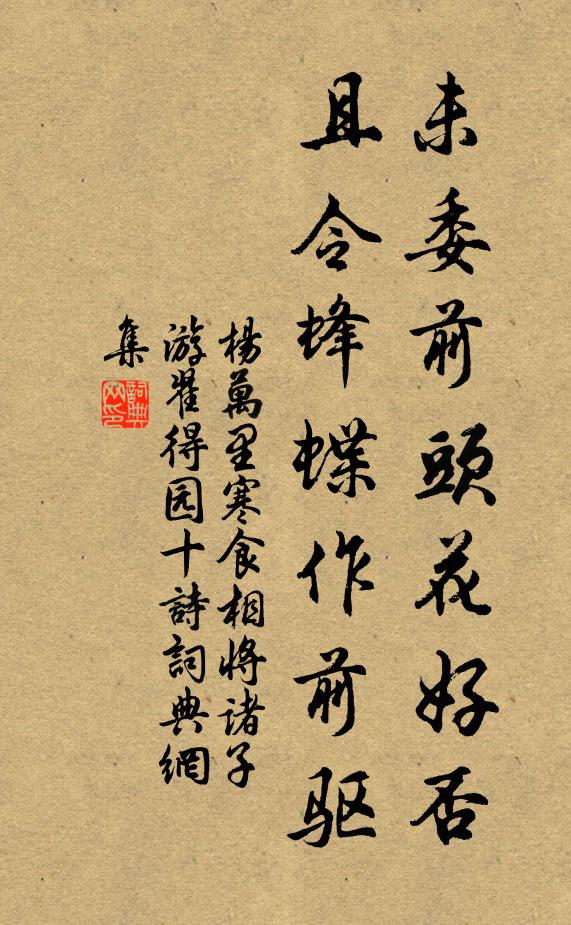 未委前頭花好否
且令蜂蝶作前驱
楊萬里寒食相將諸子
游翟得园十詩詞典網
集
詞典
网印